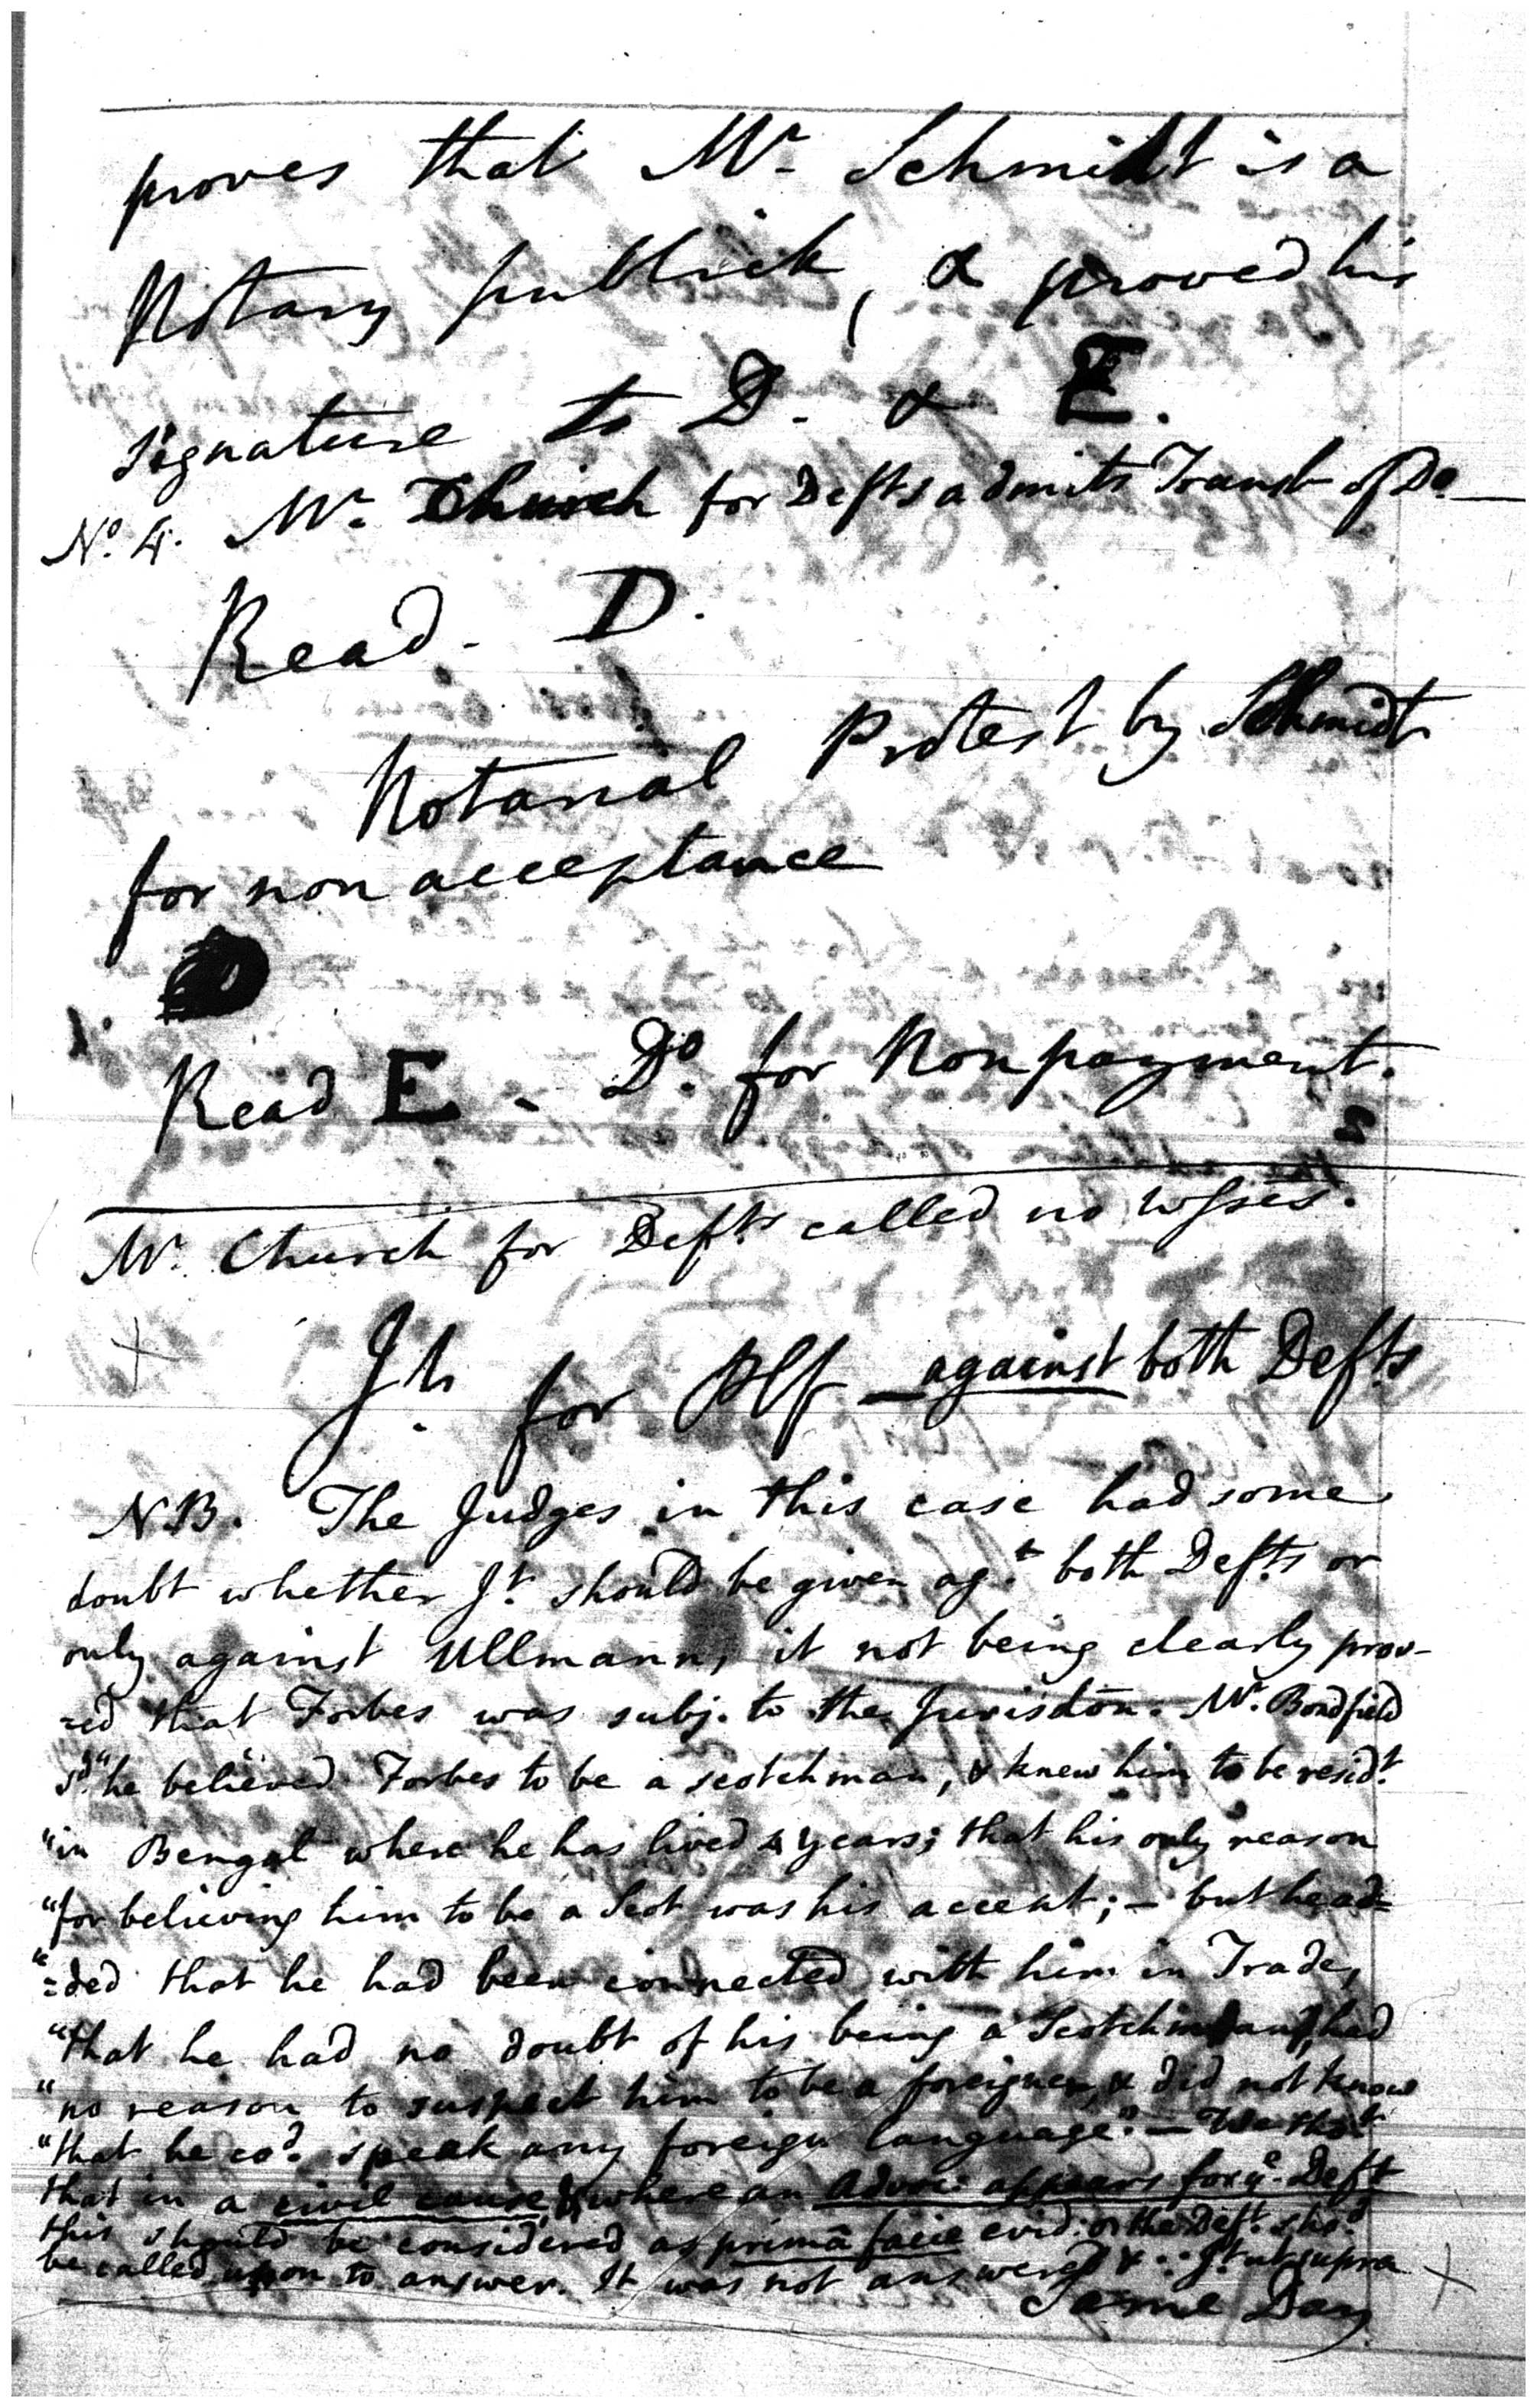 proves that Mr. Schmidt is a
Notary publick, & proved his
signature to D. & E.
No. 4. Mr. Church for Defts admits Transl. of Do.
Read. D.
Notarial Protest by Schmidt
for non acceptance
Read E. Do. for Nonpayment.
Mr. Church for Defts called no wsses.
Jt. for Plf against both Defts
N.B. The Judges in this case had some
doubt whether Jt. should be given agt. both Defts or
only against Ullmann, it not being clearly prov-
=ed that Forbes was subj. to the Jurisdon. Mr. Bondfield
sd. "he believed Forbes to be a scotchman, & knew him to be residt.
"in Bengal where he has lived 4 years; that his only reason
"for believing him to be a Scot was his accent; - but he ad=
"=ded that he had been connected with him in Trade,
"that he had no doubt of his being a Scotchman, had
"no reason to suspect him to be a foreigner, & did not know
"that he cod. speak any foreign language." - We thot.
that in a civil cause, & where an advoc: appears for ye. Deft
this should be considered as primâ facie evid: or the Deft. shod.
be called upon to answer. It was not answered & ∴ Jt. ut supra
Same Day